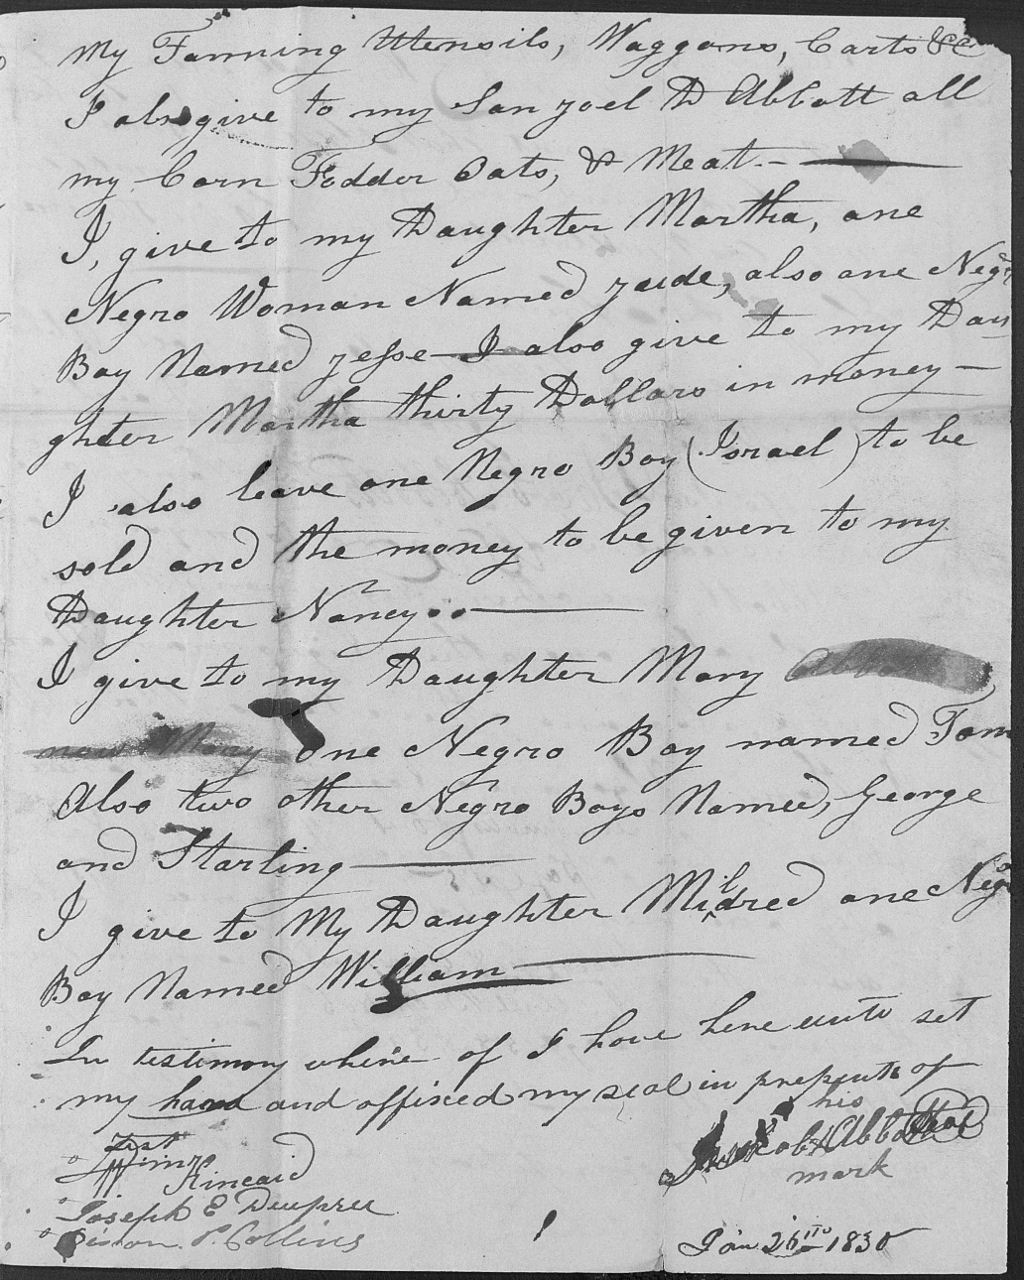 my Farming Utensils, Waggons, Carts &c
I also give to my Son Joel D Abbott all
my Corn Fodder Oats, & Meat.—
I, give to my Daughter Martha, one
Negro Woman Named Jude, also one Negro
Boy Named Jesse — I also give to my Dau
ghter Martha thirty Dollars in money —
I also leave one Negro Boy (Israel) to be
sold and the money to be given to my
Daughter Nancy..—
I give to my Daughter Mary
now Mary one Negro Boy named Tom
Also two other Negro Boys Named, George
and Starling —
I give to My Daughter Mildred one Negro
Boy Named William —
In testimony where of I have here unto set
my hand and affixed my seal in presents of
his
Jacob X Abbott Seal
mark
Test
Kincaid
Joseph E Deupree
P. Collins
Jan 26th 1830